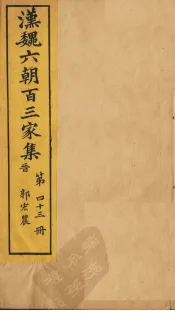 漢魏六朝百三家集
晉
第四十三冊
郭宏農